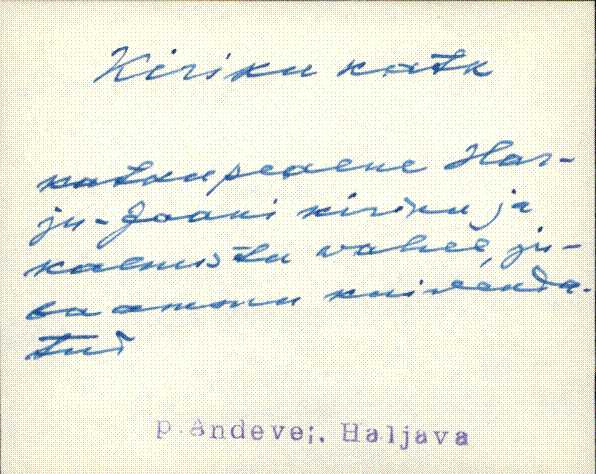 Kiriku katk
katkupealne Har-
ju-Jaani kiriku ja
kalmistu vahel, ju-
ba ammu kuivenda-
tud
p. Andevei, Haljava